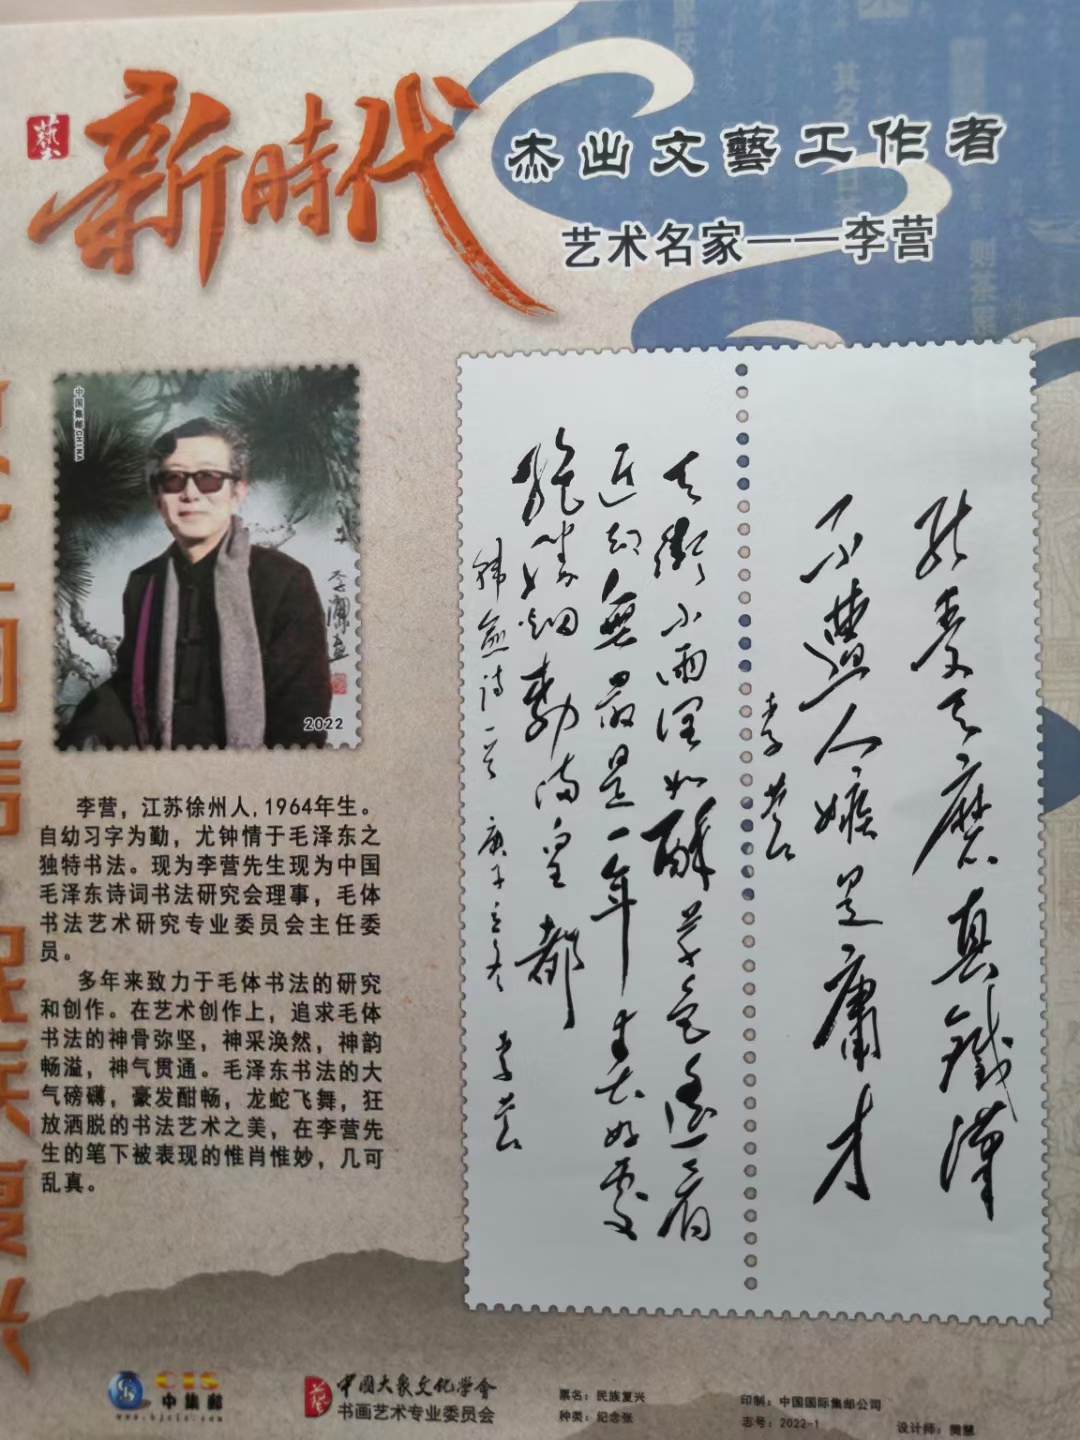 藝
新時代
杰出文藝工作者
艺术名家——李营
中国集邮CHINA
2022
李营，江苏徐州人，1964年生。
自幼习字为勤，尤钟情于毛泽东之
独特书法。现为李营先生现为中国
毛泽东诗词书法研究会理事，毛体
书法艺术研究专业委员会主任委
员。
多年来致力于毛体书法的研究
和创作。在艺术创作上，追求毛体
书法的神骨弥坚，神采涣然，神韵
畅溢，神气贯通。毛泽东书法的大
气磅礴，豪发酣畅，龙蛇飞舞，狂
放洒脱的书法艺术之美，在李营先
生的笔下被表现的惟肖惟妙，几可
乱真。
能受天磨真鐵漢
不遭人嫉是庸才
李营
天街小雨潤如酥草色遥看
近却無最是一年春好處
絶勝烟柳满皇都
韩愈诗一首 庚子立冬 李营
CIS
中集邮
中国大众文化学会
书画艺术专业委员会
票名：民族复兴
种类：纪念张
印制：中国国际集邮公司
志号：2022-1
设计师：樊慧